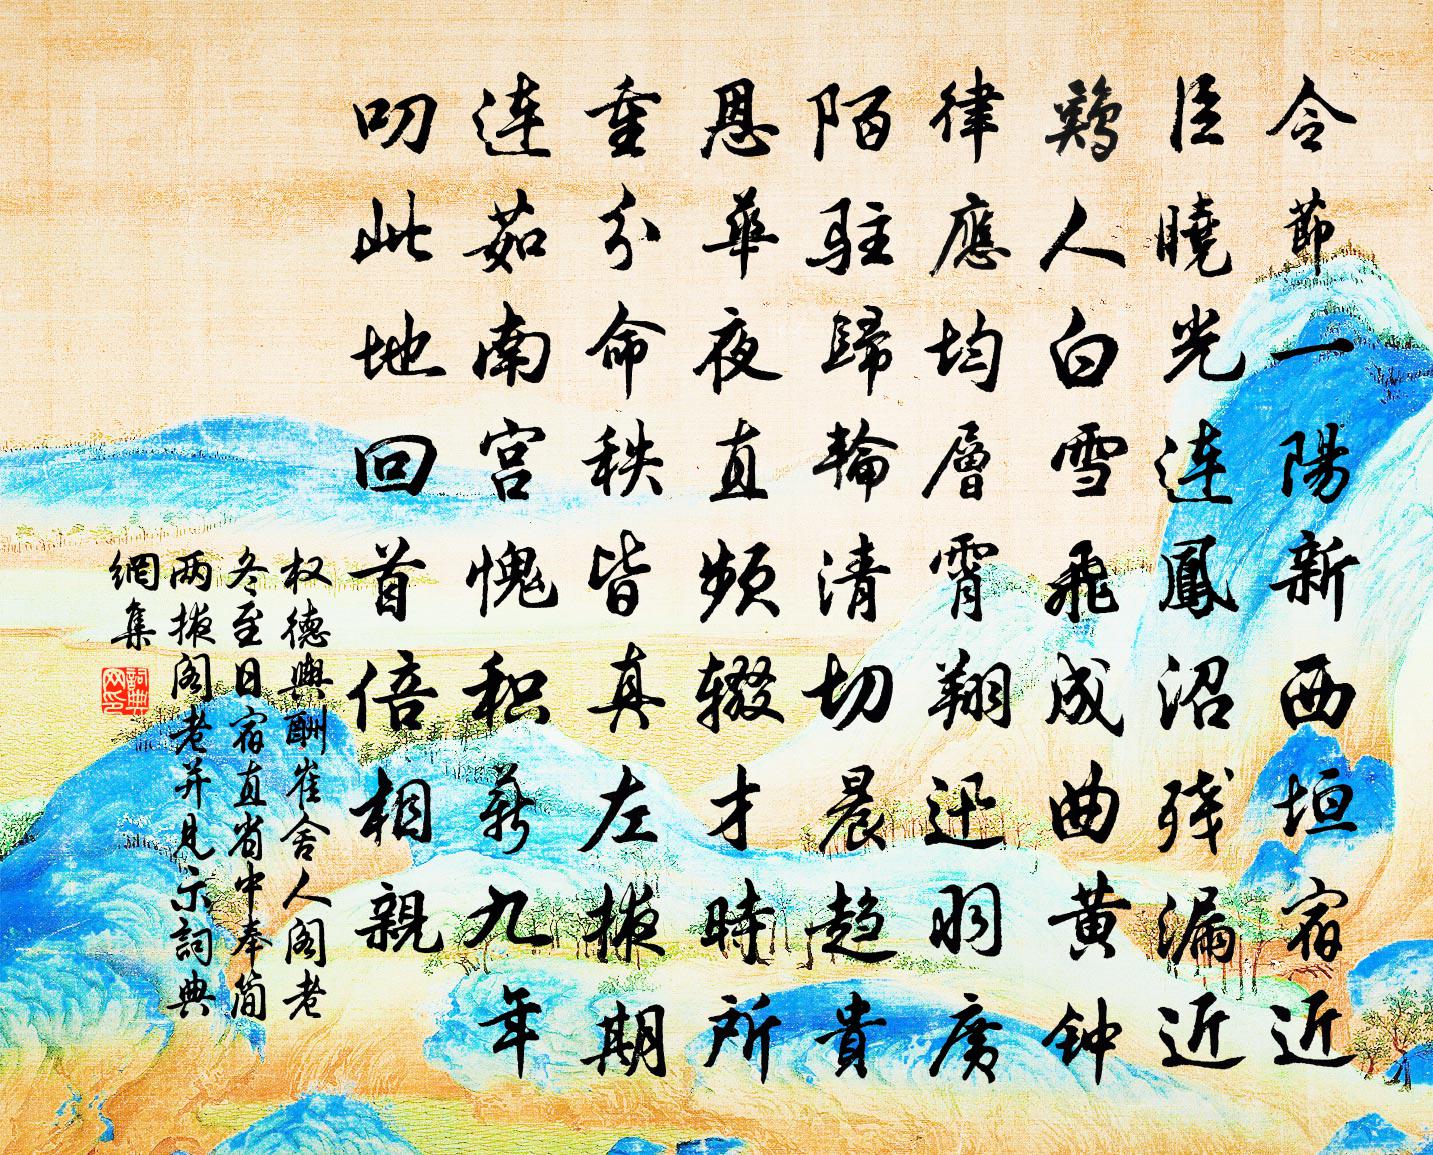 令節一陽新西垣宿近
臣曉光連鳳沼残漏近
鶏人白雪飛成曲黄钟
律應均層霄翔迅羽廣
陌駐歸輪清切晨趋貴
恩華夜直頻辍才時所
重分命秩皆真左掖期
連茹南宫愧积薪九年
叨此地回首倍相親
权德輿酬崔舍人阁老
冬至日宿直省中奉简
两掖阁老并見示詞典
網集
詞典
网